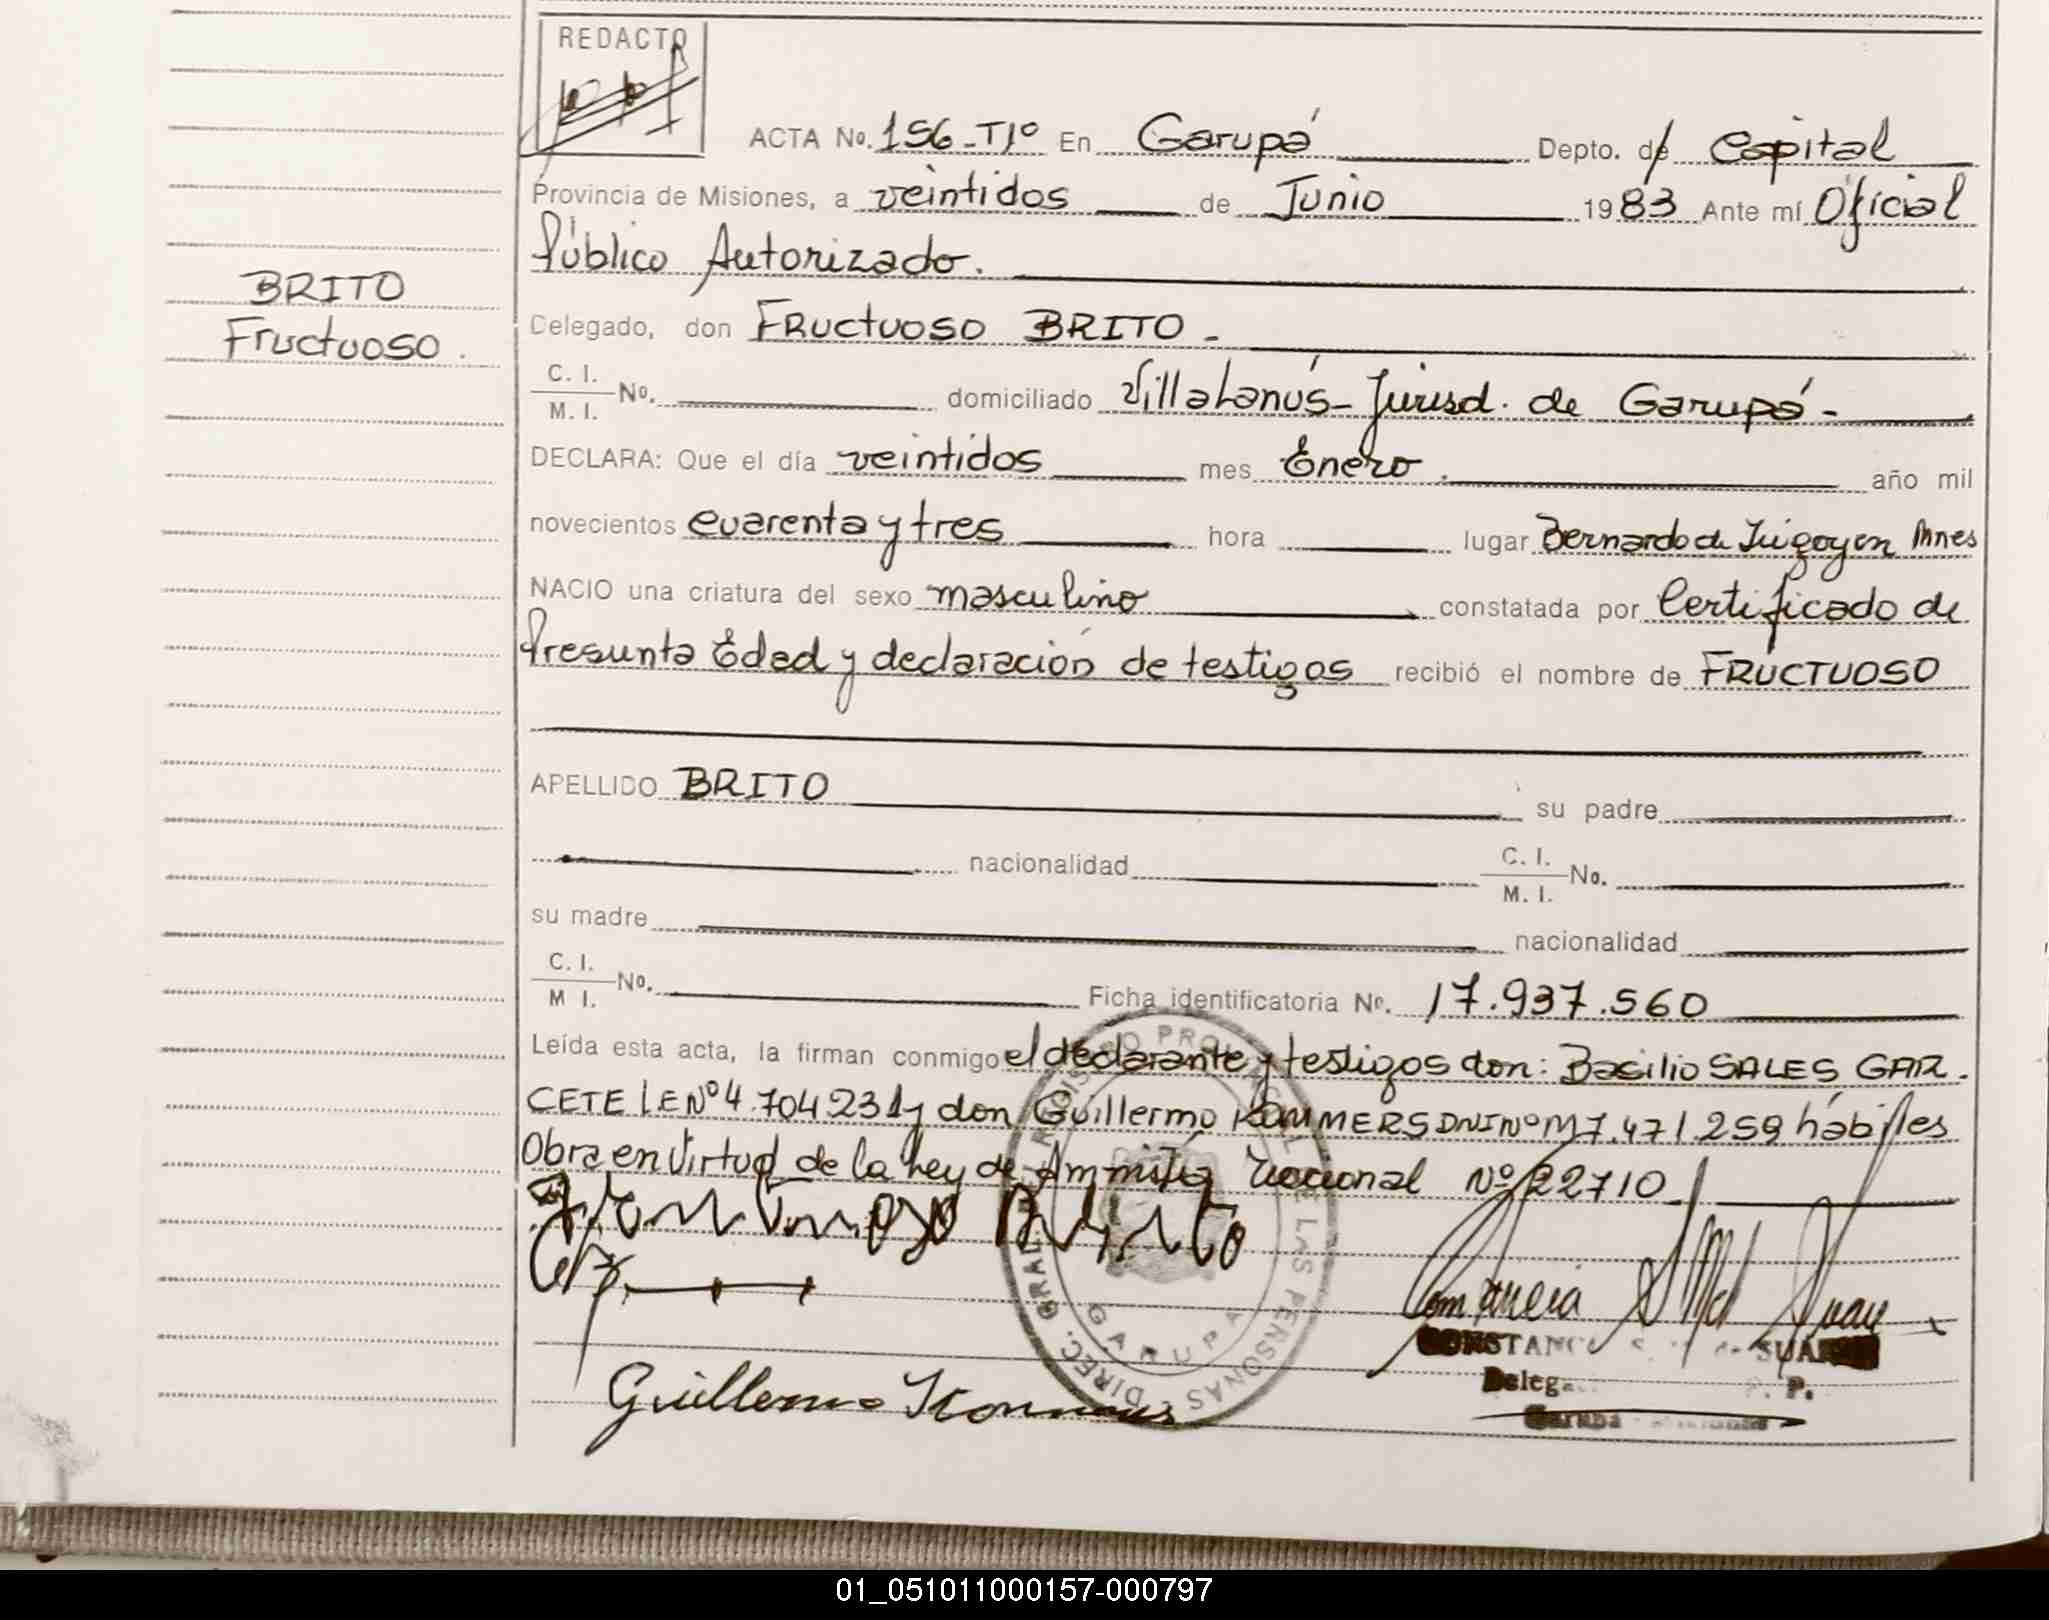 REDACTO
ACTA No. 156-Tº1º En Garupá Depto. de Capital
Provincia de Misiones, a veintidos de Junio 1983 Ante mí Oficial
Público Autorizado.
BRITO
Fructuoso.
Delegado, don FRuctuoso BRITO.-
C. I.
M. I. No. domiciliado Villa Lanús- Jurisd. de Garupá-
DECLARA: Que el día veintidos mes Enero. año mil
novecientos cuarenta y tres hora lugar Bernardo de Irigoyen Mnes
NACIO una criatura del sexo masculino constatada por Certificado de
Presunta Edad y declaración de testigos recibió el nombre de FRUCTUOSO
APELLIDO BRITO su padre
nacionalidad C. I.
M. I. No.
su madre nacionalidad
C. I.
M I. No. Ficha identificatoria No. 17.937.560
Leída esta acta, la firman conmigo el declarante y testigos don: Basilio SALES GAR.
CETE LE Nº 4.704.231 y don Guillermo KOMMERS DNI Nº M 7.471.259 hábiles
Obra en Virtud de la Ley de Ammistía Nacional Nº 22710
Guillermo Kommers
DIREC. GRAL. DE REGISTRO PROVINCIAL DE LAS PERSONAS
GARUPA
CONSTANC S. de SUA
Deleg P.
Garupa - Misiones
01_051011000157-000797